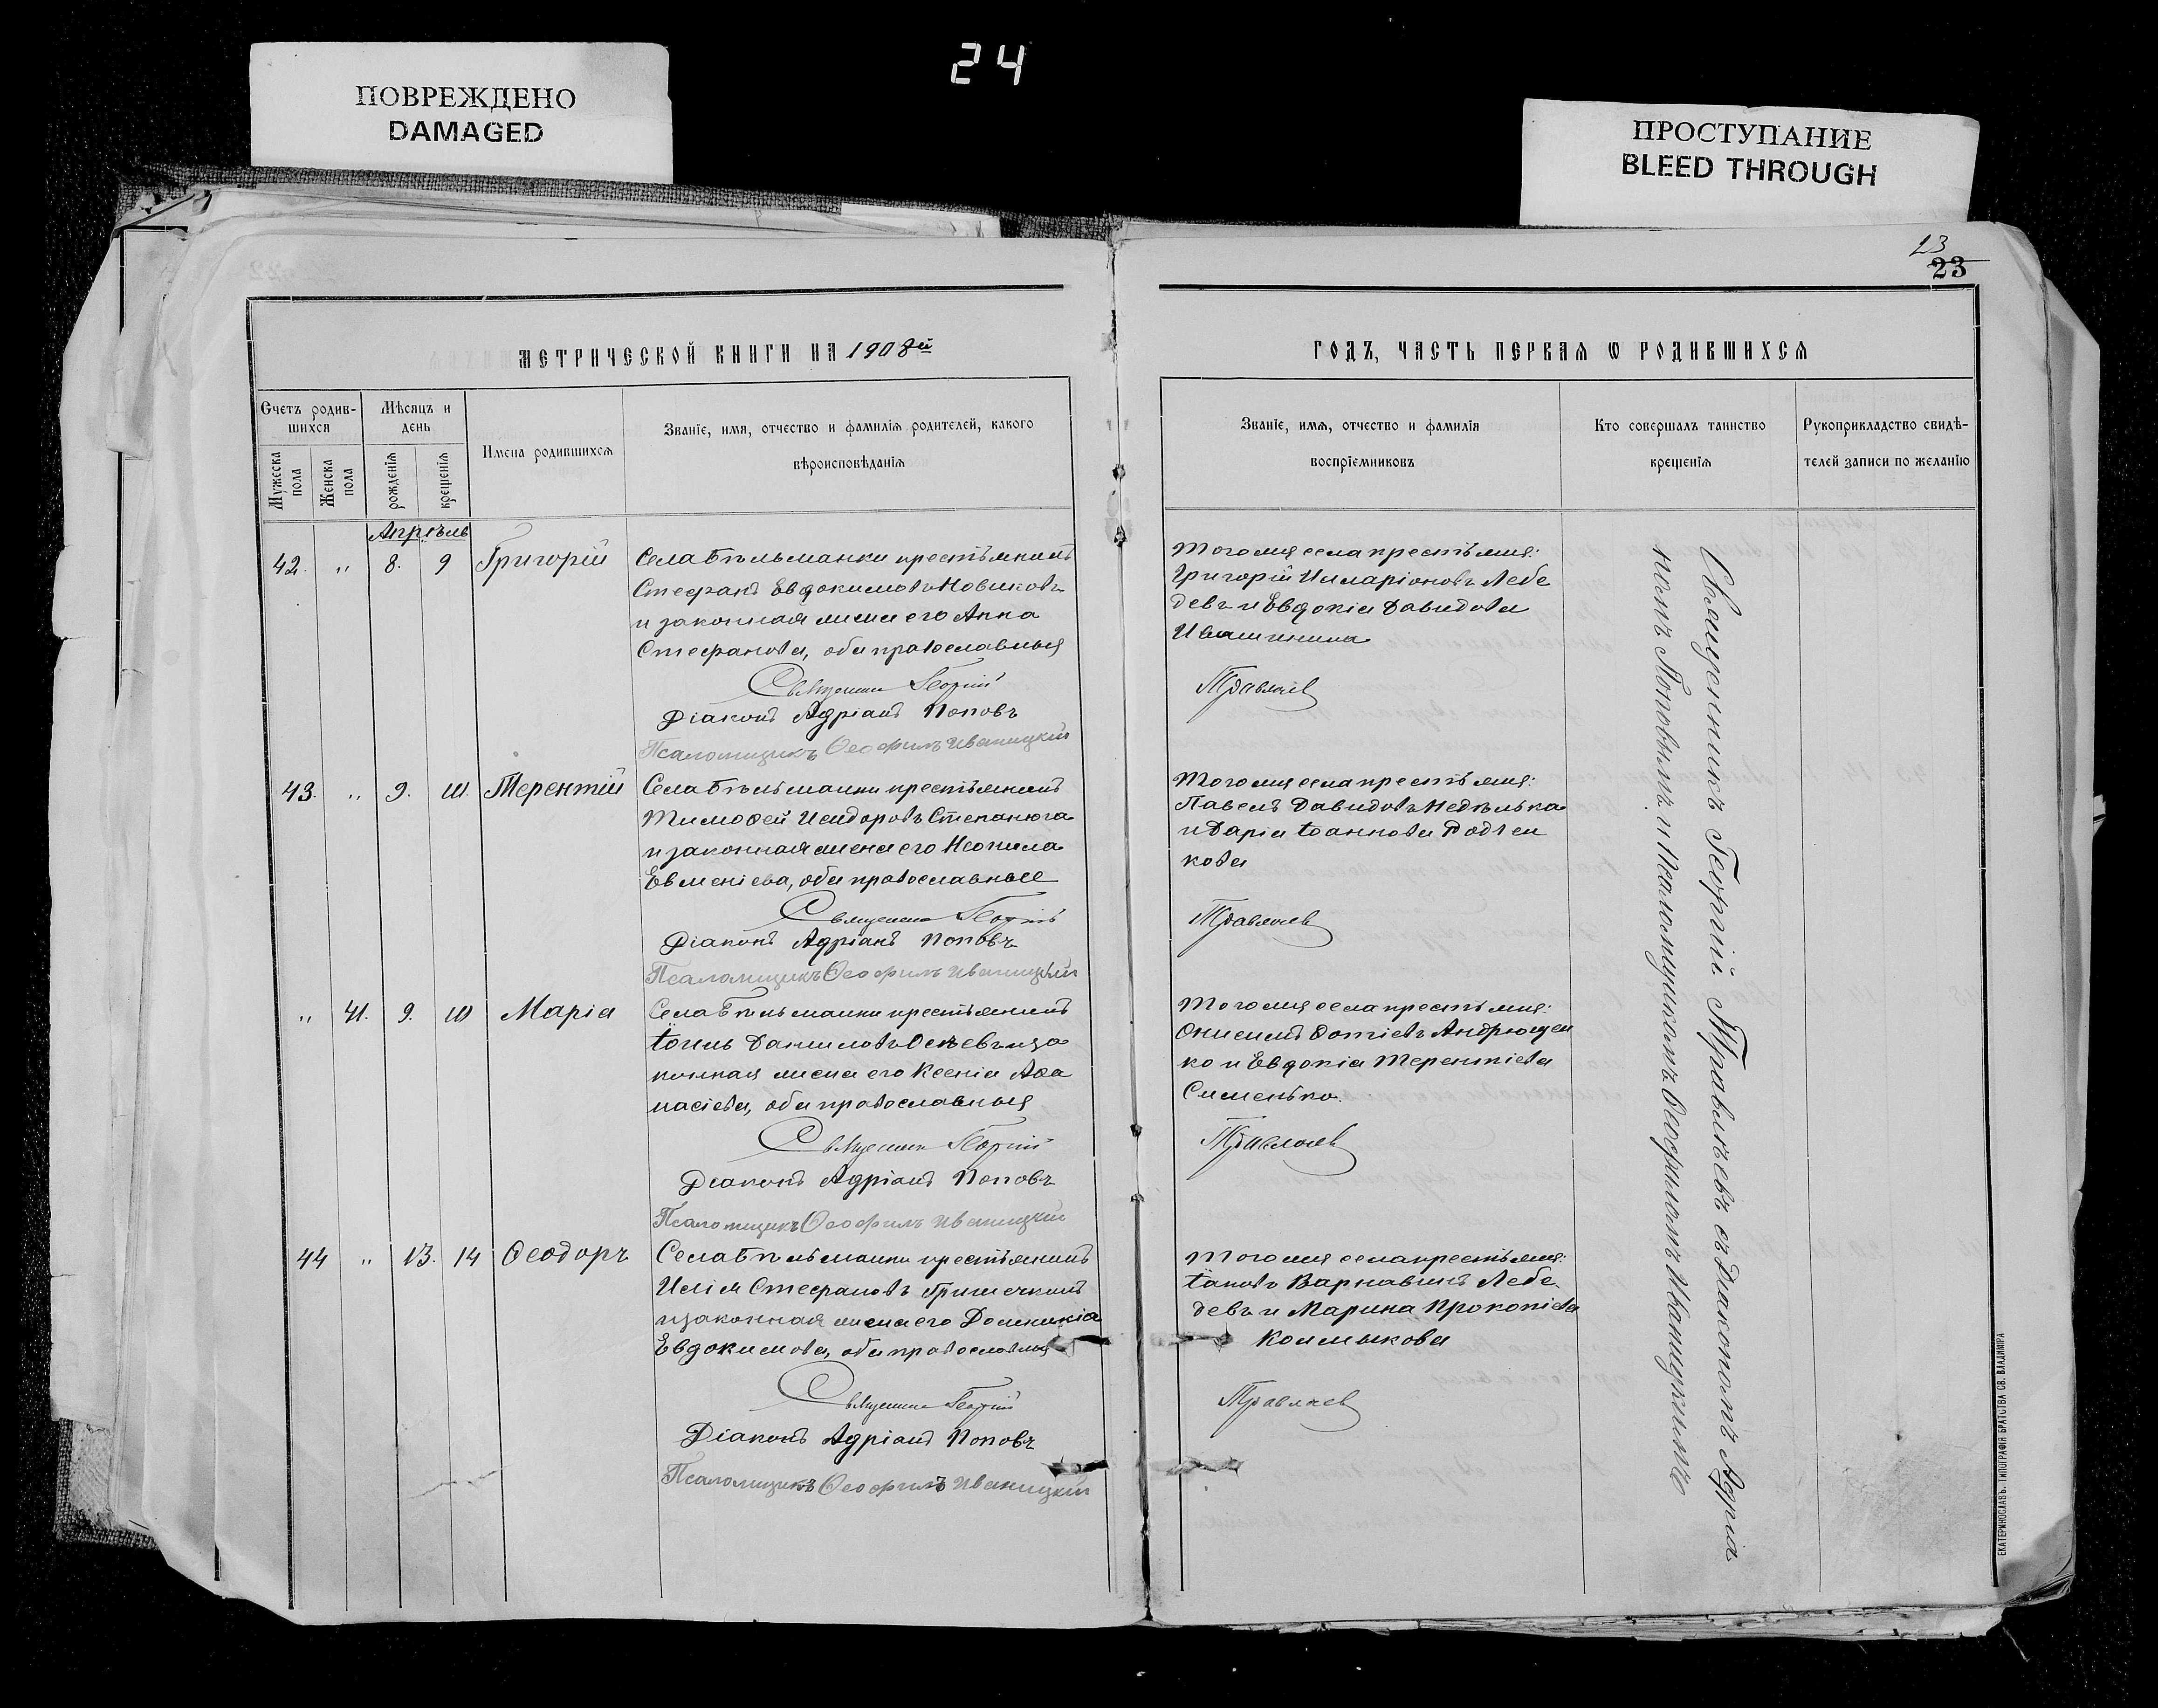 ПОВРЕЖДЕНО
DAMAGED
24
ПРОСТУПАНИЕ
BLEED THROUGH
23
23
МЕТРИЧЕСКОЙ КНИГИ НА 1908й
ГОДЪ, ЧАСТЬ ПЕРВАЯ Ѡ РОДИВШИХСЯ
Счетъ родив-
шихся
Мужеска пола
Женска пола
Мѣсяцъ и
день
рожденія
крещенія
Имена родившихся
Званіе, имя, отчество и фамилія родителей, какого
вѣроисповѣданія
Званіе, имя, отчество и фамилія
воспріемниковъ
Кто совершалъ таинство
крещенія
Рукоприкладство свидѣ-
телей записи по желанію
Апрѣль
42. „ 8. 9 Григорій
Села Бѣльманки крестьянинъ
Стефанъ Евдокимовъ Новиковъ
и законная жена его Анна
Стефанова, оба православныя
Священникъ Георгій
Діаконъ Адріанъ Поповъ
Псаломщикъ Ѳеофилъ Иваницкій
Того же села крестьяне:
Григорій Илларіоновъ Лебе
девъ и Евдокія Давидова
Ивашинина
Травлѣевъ
43. „ 9. 10. Терентій
Села Бѣльманки крестьянинъ
Тимофей Исидоровъ Степанюга
и законная жена его Неонила
Евменіева, оба православные
Священникъ Георгій
Діаконъ Адріанъ Поповъ
Псаломщикъ Ѳеофилъ Иваницкій
Того же села крестьяне:
Павелъ Давидовъ Недѣлька
и Дарія Іоаннова Родчен
кова
Травлѣевъ
„ 41. 9. 10 Марія
Села Бѣльманки крестьянинъ
Іоиль Даниловъ Осьевъ и за
конная жена его Ксенія Аѳа
насіева, оба православныя
Священникъ Георгій
Діаконъ Адріанъ Поповъ
Псаломщикъ Ѳеофилъ Иваницкій
Того же села крестьяне:
Онисимъ Фотіевъ Андрющен
ко и Евдокія Терентіева
Сименько.
Травлѣевъ
44 „ 13. 14 Ѳеодоръ
Села Бѣльманки крестьянинъ
Илія Стефановъ Гришечкинъ
и законная жена его Домникія
Евдокимова, оба православныя
Священникъ Георгій
Діаконъ Адріанъ Поповъ
Псаломщикъ Ѳеофилъ Иваницкій
Того же села крестьяне:
Іаковъ Варнавинъ Лебе
девъ и Марина Прокопіева
Колмыкова
Травлѣевъ
Священникъ Георгій Травлѣевъ съ Діакономъ Адріа
номъ Поповымъ и Псаломщикомъ Ѳеофиломъ Иваницкимъ
ЕКАТЕРИНОСЛАВЪ. ТИПОГРАФІЯ БРАТСТВА СВ. ВЛАДИМІРА